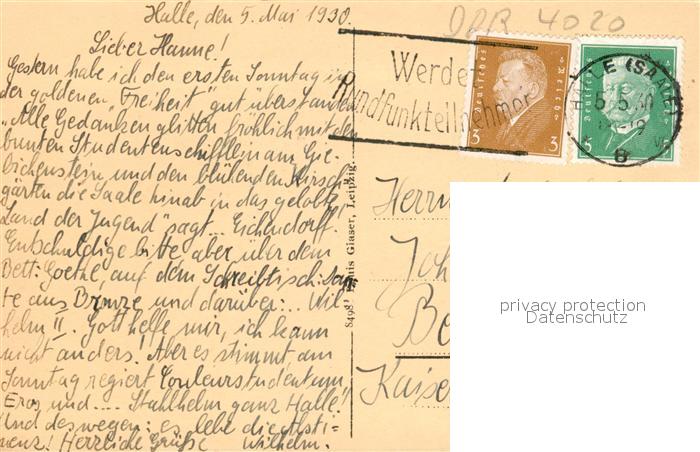 Halle, den 5. Mai 1930.
Lieber Hanne!
Gestern habe ich den ersten Sonntag in
der goldenen „Freiheit" gut überstanden.
„Alle Gedanken glitten fröhlich mit den
bunten Studentenschifflein am Gie-
bichenstein und den blühenden Kirsch-
gärten die Saale hinab in das gelobte
Land der Jugend" sagt... Eichendorff.
Entschuldige bitte, aber über dem
Bett: Goethe, auf dem Schreibtisch: Dan-
te aus Bronze und darüber:... Wil-
helm II. Gott helfe mir, ich kann
nicht anders! Aber es stimmt am
Sonntag regiert Couleurstudentum,
Eros und.... Stahlhelm ganz Halle!
Und deswegen: es lebe die Absti-
nenz! Herzliche Grüße Wilhelm.
DRR 4020
Werde
Rundfunkteilnehmer
Deutsches Reich
3 3
Deutsches Reich
5
HALLE (SAALE)
5.5.30
8
Herrn
Joh
Be
Kaiser
8498 Louis Glaser, Leipzig.
privacy protection
Datenschutz